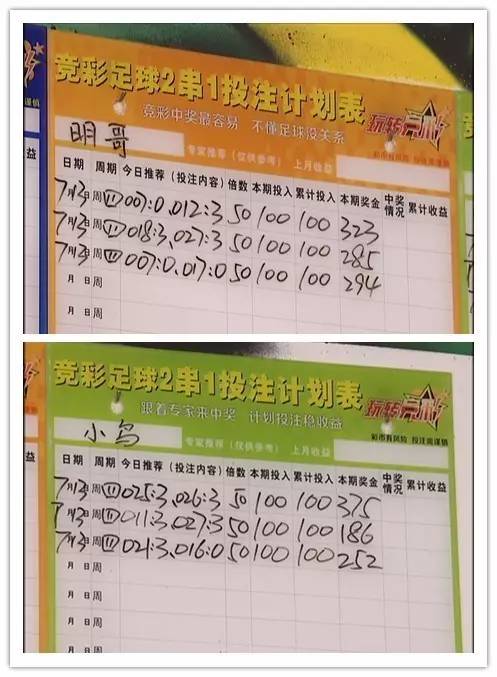 竞彩足球2串1投注计划表
竞彩中奖最容易 不懂足球没关系
玩转竞彩
明哥
专家推荐（仅供参考） 上月收益
彩市有风险 投注需谨慎
日期 周期 今日推荐（投注内容） 倍数 本期投入 累计投入 本期奖金 中奖情况 累计收益
7月3日 周四 007:0、012:3 50 100 100 323
7月3日 周四 018:3、027:3 50 100 100 285
7月3日 周四 007:0、017:0 50 100 100 294
月 日 周
月 日 周
竞彩足球2串1投注计划表
跟着专家来中奖 计划投注稳收益
玩转竞彩
小鸟
专家推荐（仅供参考） 上月收益
彩市有风险 投注需谨慎
日期 周期 今日推荐（投注内容） 倍数 本期投入 累计投入 本期奖金 中奖情况 累计收益
7月3日 周四 025:3、026:3 50 100 100 375
7月3日 周四 011:3、027:3 50 100 100 186
7月3日 周四 021:3、016:0 50 100 100 252
月 日 周
月 日 周
月 日 周
月 日 周